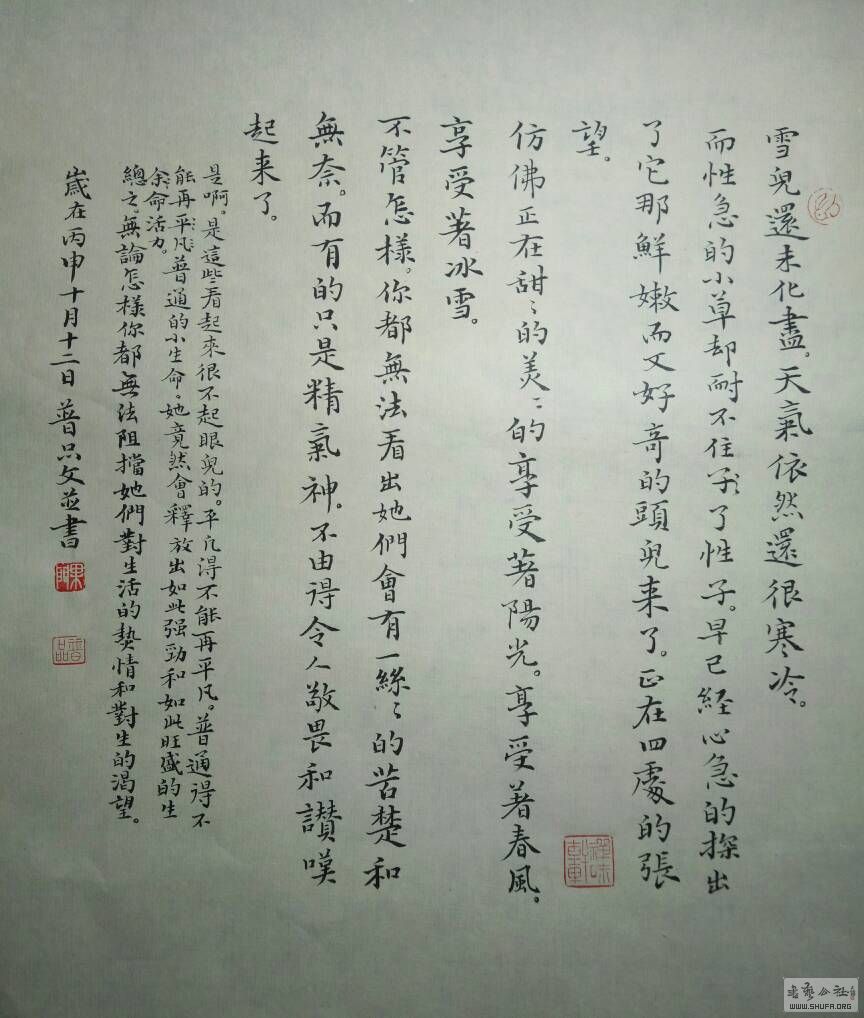 雪兒還未化盡。天氣依然還很寒冷。
而性急的小草却耐不住了性子。早已經心急的探出
了它那鮮嫩而又好奇的頭兒来了。正在四處的張
望。
仿佛正在甜〻的美〻的享受著陽光。享受著春風。
享受著冰雪。
不管怎樣。你都無法看出她們會有一絲〻的苦楚和
無奈。而有的只是精氣神。不由得令人敬畏和讃嘆
起来了。
是啊。是這些看起來很不起眼兒的。平凡得不能再平凡。普通得不
能再平凡普通的小生命。她竟然會釋放出如此强勁和如此旺盛的生
命活力。
總之。無論怎樣你都無法阻擋她們對生活的熱情和對生的渴望。
歲在丙申十月十二日 普品文並書
禪味軒
普品
書藝公社
WWW.SHUFA.ORG